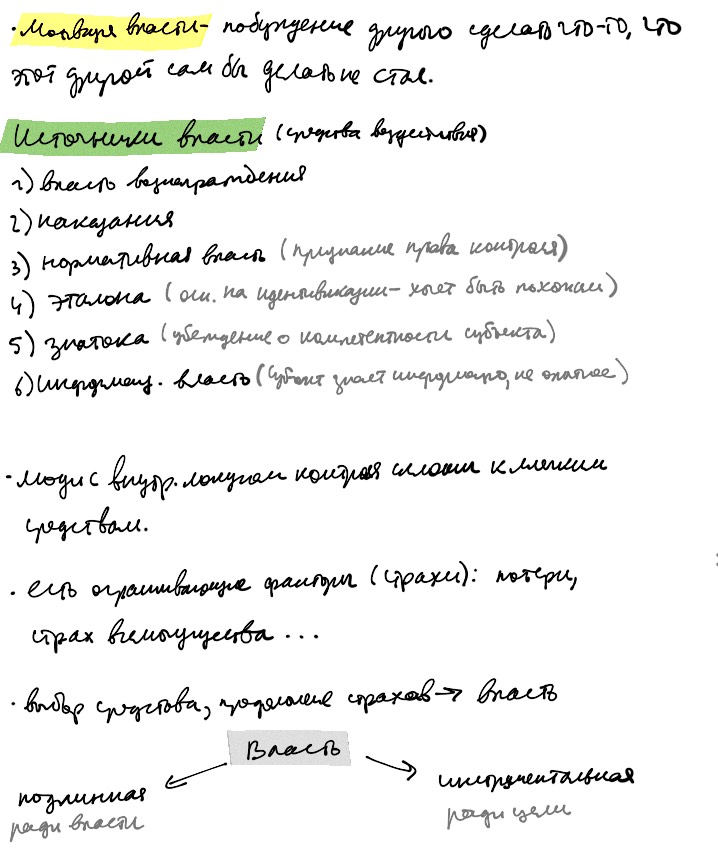 · Мотивация власти - побуждение другого сделать что-то, что
этот другой сам бы делать не стал.
Источники власти (средства воздействия)
1) власть вознаграждения
2) наказания
3) нормативная власть (признание права контроля)
4) эталона (осн. на идентификации - хочет быть похожим)
5) знатока (убеждение о компетентности субъекта)
6) информац. власть (субъект знает информацию, не опытнее)
· люди с внутр. локусом контроля склонны к мягким
средствам.
· есть ограничивающие факторы (страхи): потери,
страх всемогущества ...
· выбор средства, преодоление страхов → власть
Власть
подлинная инструментальная
ради власти ради цели